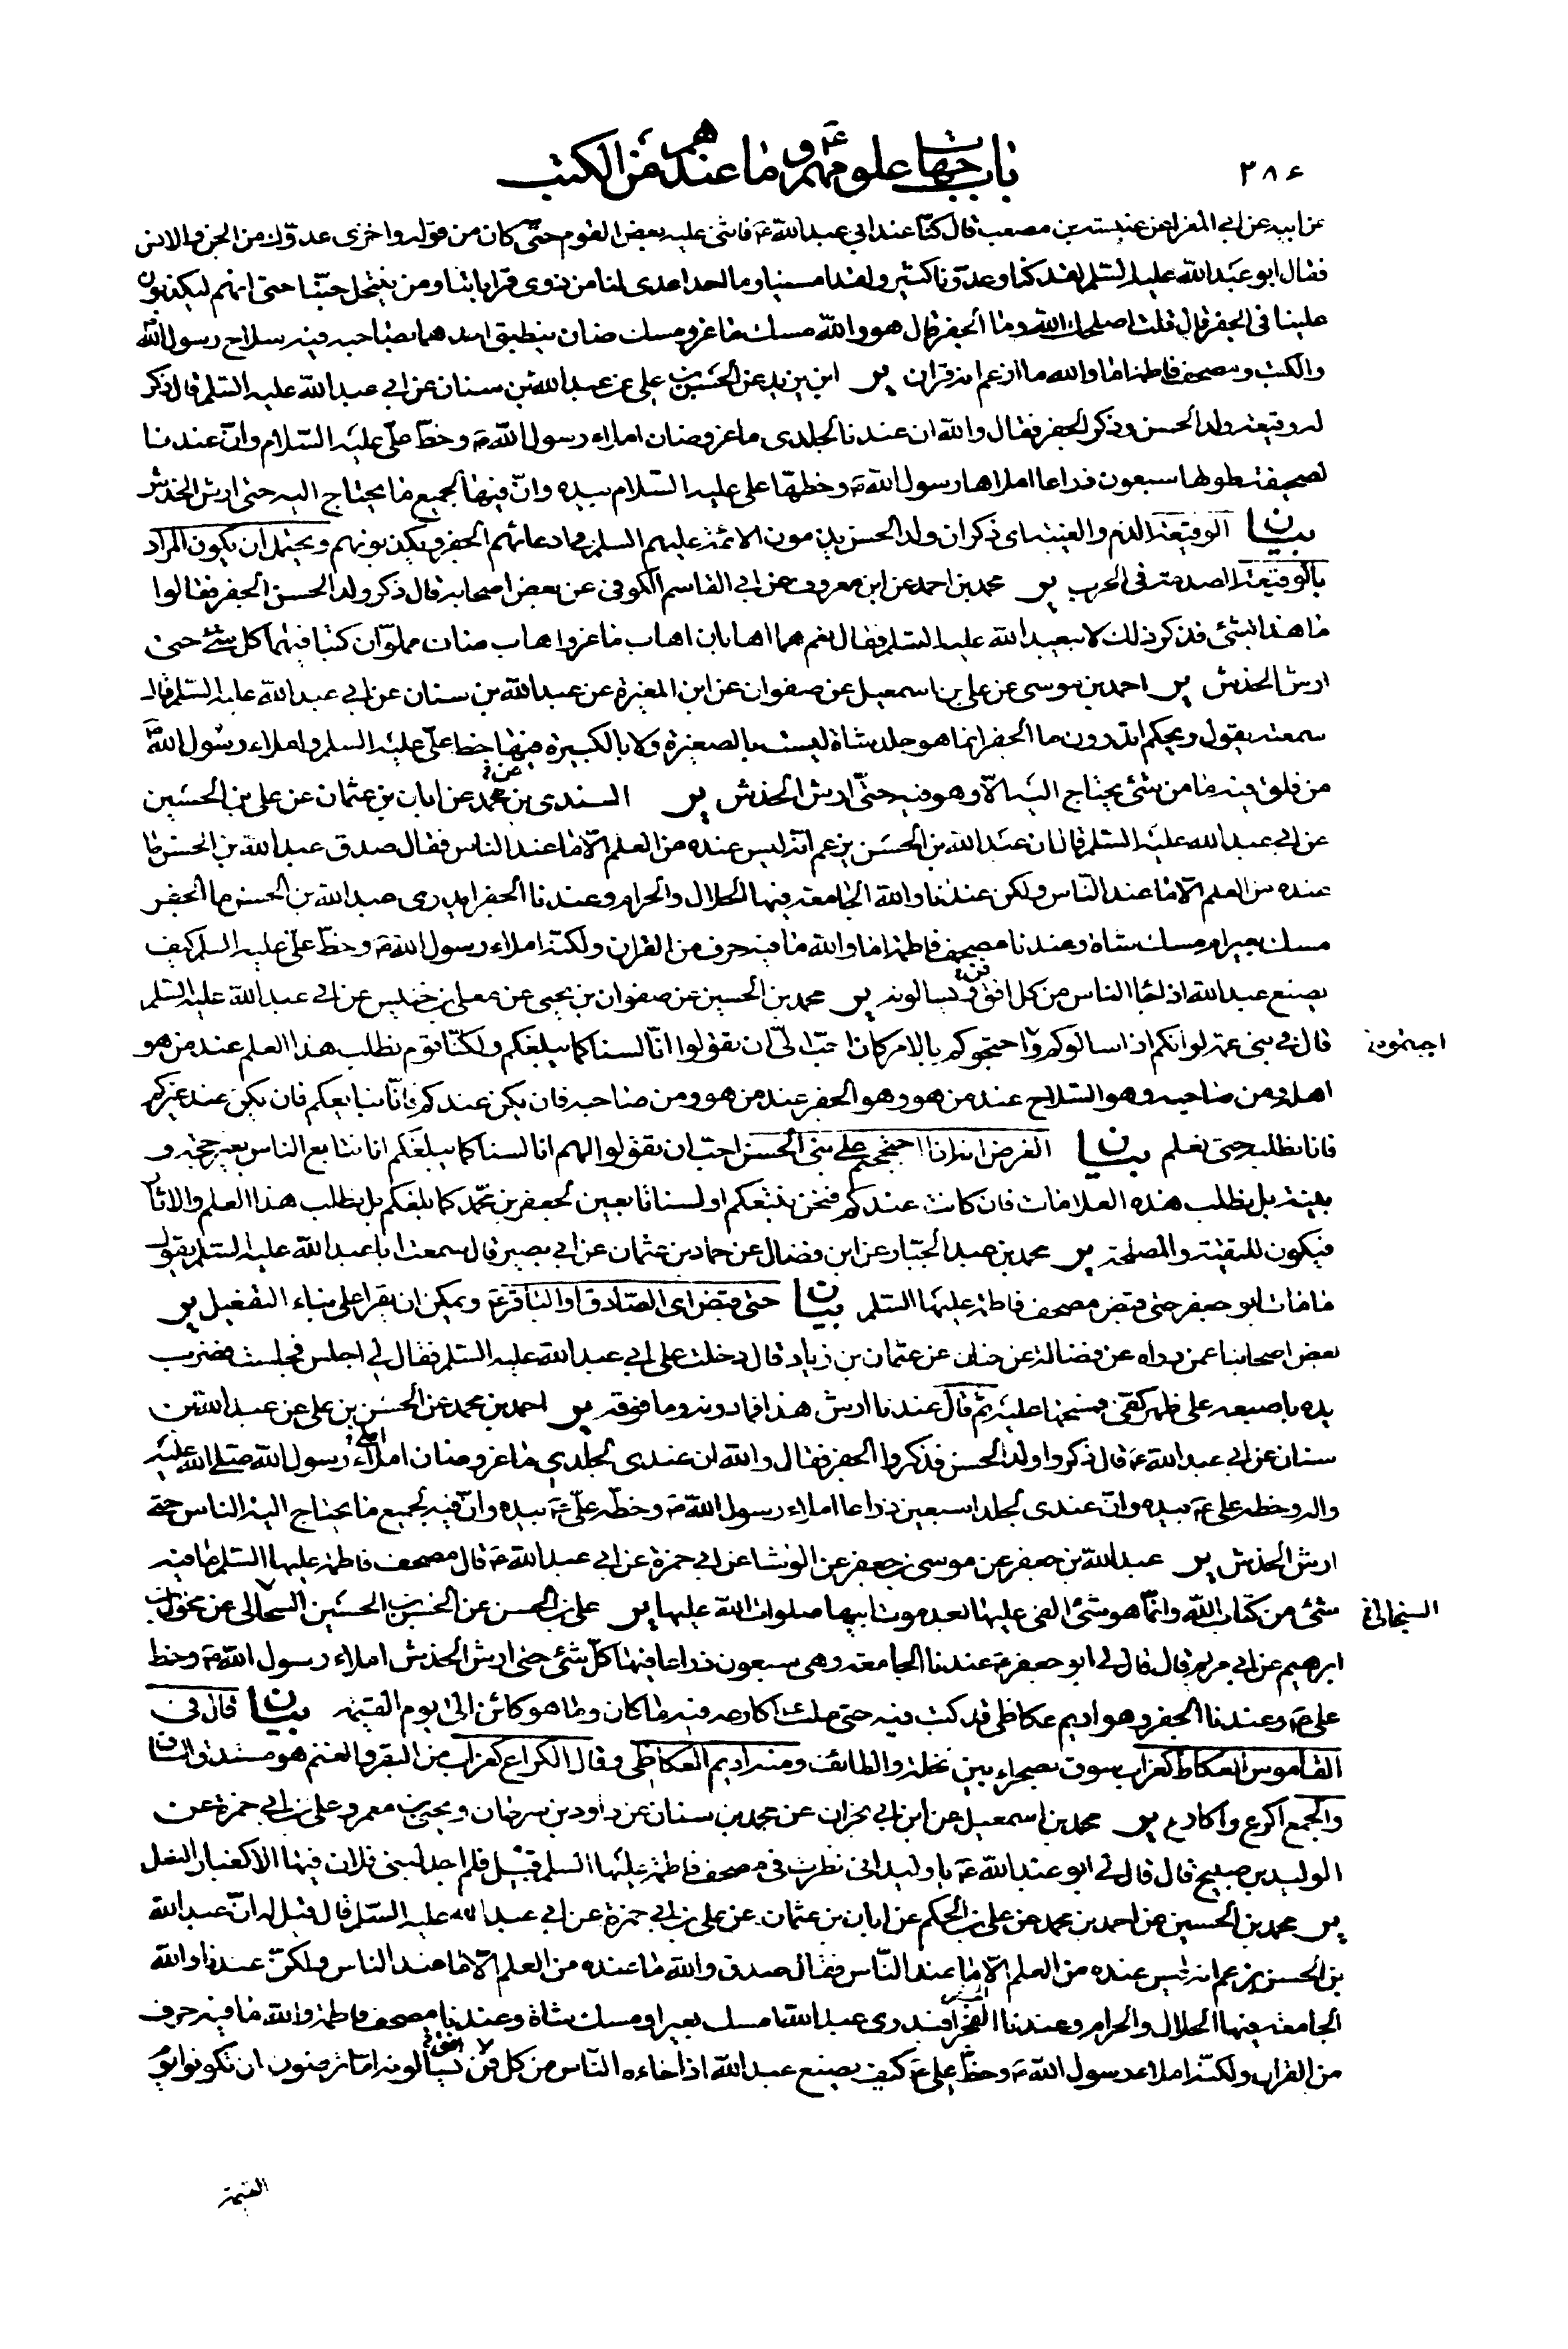 ٣٨٤
باب جهات علومهم ع و ما عندهم من الكتب
عن ابيه عن ابي المغرا عن عنبسة بن مصعب قال كنّا عند ابي عبد الله ع فاثنى عليه بعض القوم حتّى كان من قوله واخزى عدوّك من الجن والانس
فقال ابو عبد الله عليه السّلم لقد كنا وعدوّنا كثير ولقد امسينا وما احد اعدى لنا من ذوى قراباتنا ومن ينتحل حبّنا حتى انهم ليكذبون
علينا فى الجفر قال قلت اصلحك الله وما الجفر قال هو والله مسك ماعز ومسك ضان ينطبق احدهما بصاحبه فيه سلاح رسول الله ص
والكتب ومصحف فاطمة اما والله ما ازعم انه قران ير ابن يزيد عن الحسن بن علي عن عبد الله بن سنان عن ابي عبد الله عليه السّلم قال ذكر
له وقيعة ولد الحسن وذكر الجفر فقال والله ان عندنا لجلدى ماعز وضان املاء رسول الله ص وخطّ علىّ عليه السّلام وانّ عندنا
لصحيفة طولها سبعون ذراعا املاها رسول الله ص وخطها على عليه السّلام بيده وانّ فيها لجميع ما يحتاج اليه حتى ارش الخدش
بيان الوقيعة الذم والغيبة اى ذكر ان ولد الحسن يذمون الائمة عليهم السلم في ادعائهم الجفر ويكذبونهم ويحتمل ان يكون المراد
بالوقيعة الصدمة فى الحرب ير محمد بن احمد عن ابن معروف عن ابي القاسم الكوفى عن بعض اصحابه قال ذكر ولد الحسن الجفر فقالوا
ما هذا بشئ فذكر ذلك لابيعبد الله عليه السّلم فقال نعم هما اهابان اهاب ماعز واهاب ضان مملوّان كتبا فيهما كل شئ حتى
ارش الخدش ير احمد بن موسى عن علي بن اسمعيل عن صفوان عن ابن المغيرة عن عبد الله بن سنان عن ابي عبد الله عليه السّلم قال
سمعته يقول ويحكم اتدرون ما الجفر انما هو جلد شاة ليست بالصغيرة ولا بالكبيرة فيها خط علىّ عليه السلم واملاء رسول الله ص
من فلق فيه ما من شئ يحتاج اليه الاّ وهو فيه حتّى ارش الخدش ير السندى بن محمد عن ابان بن عثمان عن علي بن الحسين
عن ابي عبد الله عليه السّلم قال ان عبد الله بن الحسن يزعم انّه ليس عنده من العلم الاّ ما عند الناس فقال صدق عبد الله بن الحسن ما
عنده من العلم الاّ ما عند النّاس ولكن عندنا والله الجامعة فيها الحلال والحرام وعندنا الجفر ايدرى عبد الله بن الحسن ما الجفر
مسك بعير ام مسك شاة وعندنا مصحف فاطمة اما والله ما فيه حرف من القران ولكنّه املاء رسول الله ص وخطّ علىّ عليه السلم كيف
يصنع عبد الله اذا جاء الناس من كل افق ويسالونه ير محمد بن الحسين عن صفوان بن يحيى عن معلى بن خنيس عن ابي عبد الله عليه السّلم
قال فى بنى عمّه لو انكم اذا سالوكم واحتجوكم بالامر كان احبّ الىّ ان تقولوا انّا لسنا كما يبلغكم ولكنّا قوم نطلب هذا العلم عند من هو
اهله ومن صاحبه وهو السّلاح عند من هو وهو الجفر عند من هو ومن صاحبه فان يكن عندكم فانّا نبايعكم فان يكن عند غيركم
فانا نطلبه حتى نعلم بيان الغرض انه اذا احتججتم على بنى الحسن احب ان تقولوا لهم انا لسنا كما يبلغكم انا نتابع الناس بغير حجة و
بينة بل نطلب هذه العلامات فان كانت عندكم فنحن نتبعكم او لسنا تابعين لجعفر بن محمّد كما بلغكم بل نطلب هذا العلم والاثار
فيكون للتقية والمصلحة ير محمد بن عبد الجبّار عن ابن فضال عن حماد بن عثمان عن ابي بصير قال سمعت ابا عبد الله عليه السّلم يقول
ما مات ابو جعفر حتى قبض مصحف فاطمة عليها السّلم بيان حتى قبض اى الصّادق او الباقر ع ويمكن ان يقرا على بناء التفعيل ير
بعض اصحابنا عمن رواه عن فضالة عن حنان عن عثمان بن زياد قال دخلت على ابي عبد الله عليه السّلم فقال لي اجلس فجلست فضرب
يده باصبعه على ظهر كفى فمسحها عليه ثم قال عندنا ارش هذا فما دونه وما فوقه ير احمد بن محمد عن الحسن بن علي عن عبد الله بن
سنان عن ابي عبد الله ع قال ذكروا ولد الحسن فذكروا الجفر فقال والله ان عندى لجلدي ماعز وضان املاء رسول الله صلّى الله عليه
واله وخطه على ع بيده وانّ عندى لجلدا سبعين ذراعا املاء رسول الله ص وخطّه علىّ ع بيده وانّ فيه لجميع ما يحتاج اليه الناس حتى
ارش الخدش ير عبد الله بن جعفر عن موسى بن جعفر عن الوشا عن ابي حمزة عن ابي عبد الله ع قال مصحف فاطمة عليها السّلم ما فيه
شئ من كتاب الله وانّما هو شئ القى عليها بعد موت ابيها صلوات الله عليها ير على بن الحسن عن الحسن بن الحسين السحالى عن مخول بن
ابرهيم عن ابي مريم قال قال لي ابو جعفر ع عندنا الجامعة وهى سبعون ذراعا فيها كلّ شئ حتى ارش الخدش املاء رسول الله ص وخط
على ع وعندنا الجفر وهو اديم عكاظى قد كتب فيه حتى ملئت اكارعه فيه ما كان وما هو كائن الى يوم القيمة بيان قال فى
القاموس العكاظ كغراب سوق بصحراء بين نخلة والطائف ومنه اديم العكاظى وقال الكراع كغراب من البقر والغنم هو مستدق الساق
والجمع اكرع واكارع ير محمد بن اسمعيل عن ابن ابي نجران عن محمد بن سنان عن داود بن سرحان ويحيى بن معمر وعلى بن ابي حمزة عن
الوليد بن صبيح قال قال لي ابو عبد الله ع يا وليد انى نظرت فى مصحف فاطمة عليها السلم قبيل فلم اجد لبنى فلان فيها الا كغبار النعل
ير محمد بن الحسين عن احمد بن محمد عن على بن الحكم عن ابان بن عثمان عن على بن ابي حمزة عن ابي عبد الله عليه السّلم قال قيل له انّ عبد الله
بن الحسن يزعم انه ليس عنده من العلم الاّ ما عند النّاس فقال صدق والله ما عنده من العلم الاّ ما عند الناس ولكنّ عندنا والله
الجامعة فيها الحلال والحرام وعندنا الجفر افيدرى عبد الله امسك بعير او مسك شاة وعندنا مصحف فاطمة والله ما فيه حرف
من القران ولكنّه املاء رسول الله ص وخطّ على ع كيف يصنع عبد الله اذا جاءه النّاس من كل فن يسألونه اما ترضون ان تكونوا يوم
القيمة